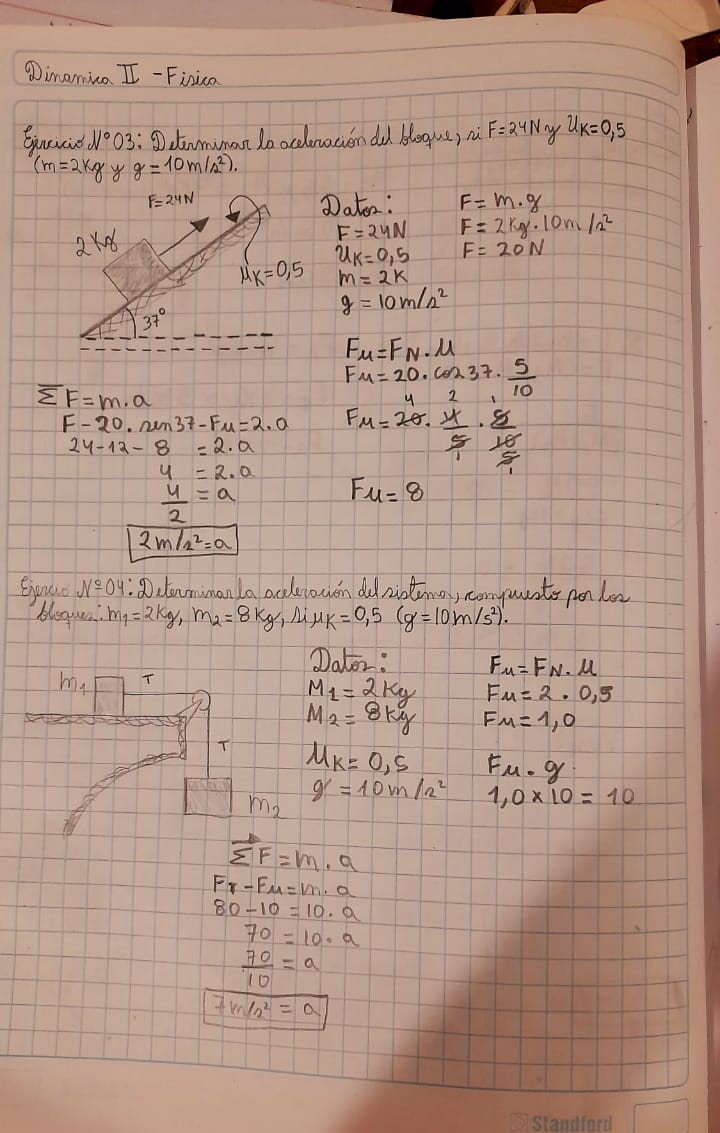 Dinamica II - Fisica
Ejercicio N°03: Determinar la aceleración del bloque, si F=24N y Uк=0,5
(m=2Kg y g=10m/s²).
F=24N
2Kg
Mк=0,5
37°
Datos:
F=24N
Uк=0,5
m=2K
g=10m/s²
F=m.g
F=2Kg.10m/s²
F=20N
Fu=FN.M
Fu=20.cos37. 5/10
Fu=20. 4/5 . 5/10
4 2 1
1 5 1
Fu=8
ΣF=m.a
F-20.sen37-Fu=2.a
24-12-8=2.a
4=2.a
4/2=a
2m/s²=a
Ejercio N°04: Determinar la aceleración del sistema, compuesto por los
bloques: m₁=2Kg, m₂=8Kg, si μк=0,5 (g=10m/s²).
m₁
T
T
m₂
Datos:
M₁=2Kg
M₂=8Kg
Mк=0,5
g=10m/s²
Fu=FN.M
Fu=2.0,5
Fu=1,0
Fu.g
1,0x10=10
ΣF=m.a
FT-Fu=m.a
80-10=10.a
70=10.a
70/10=a
7m/s²=a
Standford